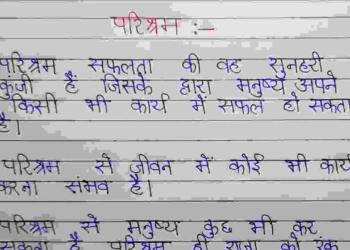 परिश्रम :-
परिश्रम सफलता की वह सुनहरी
कुंजी है जिसके द्वारा मनुष्य अपने
किसी भी कार्य में सफल हो सकता
है।
परिश्रम से जीवन में कोई भी कार्य
करना संभव है।
परिश्रम से मनुष्य कुछ भी कर
सकता है परिश्रम ही राजा को रंक